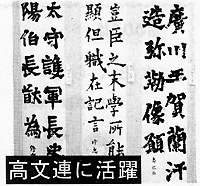 廣川王賀蘭汗
造弥勒像願
豈臣之末學所能
顯但職在記言
太守護軍長史
陽伯長猷為
高文連に活躍